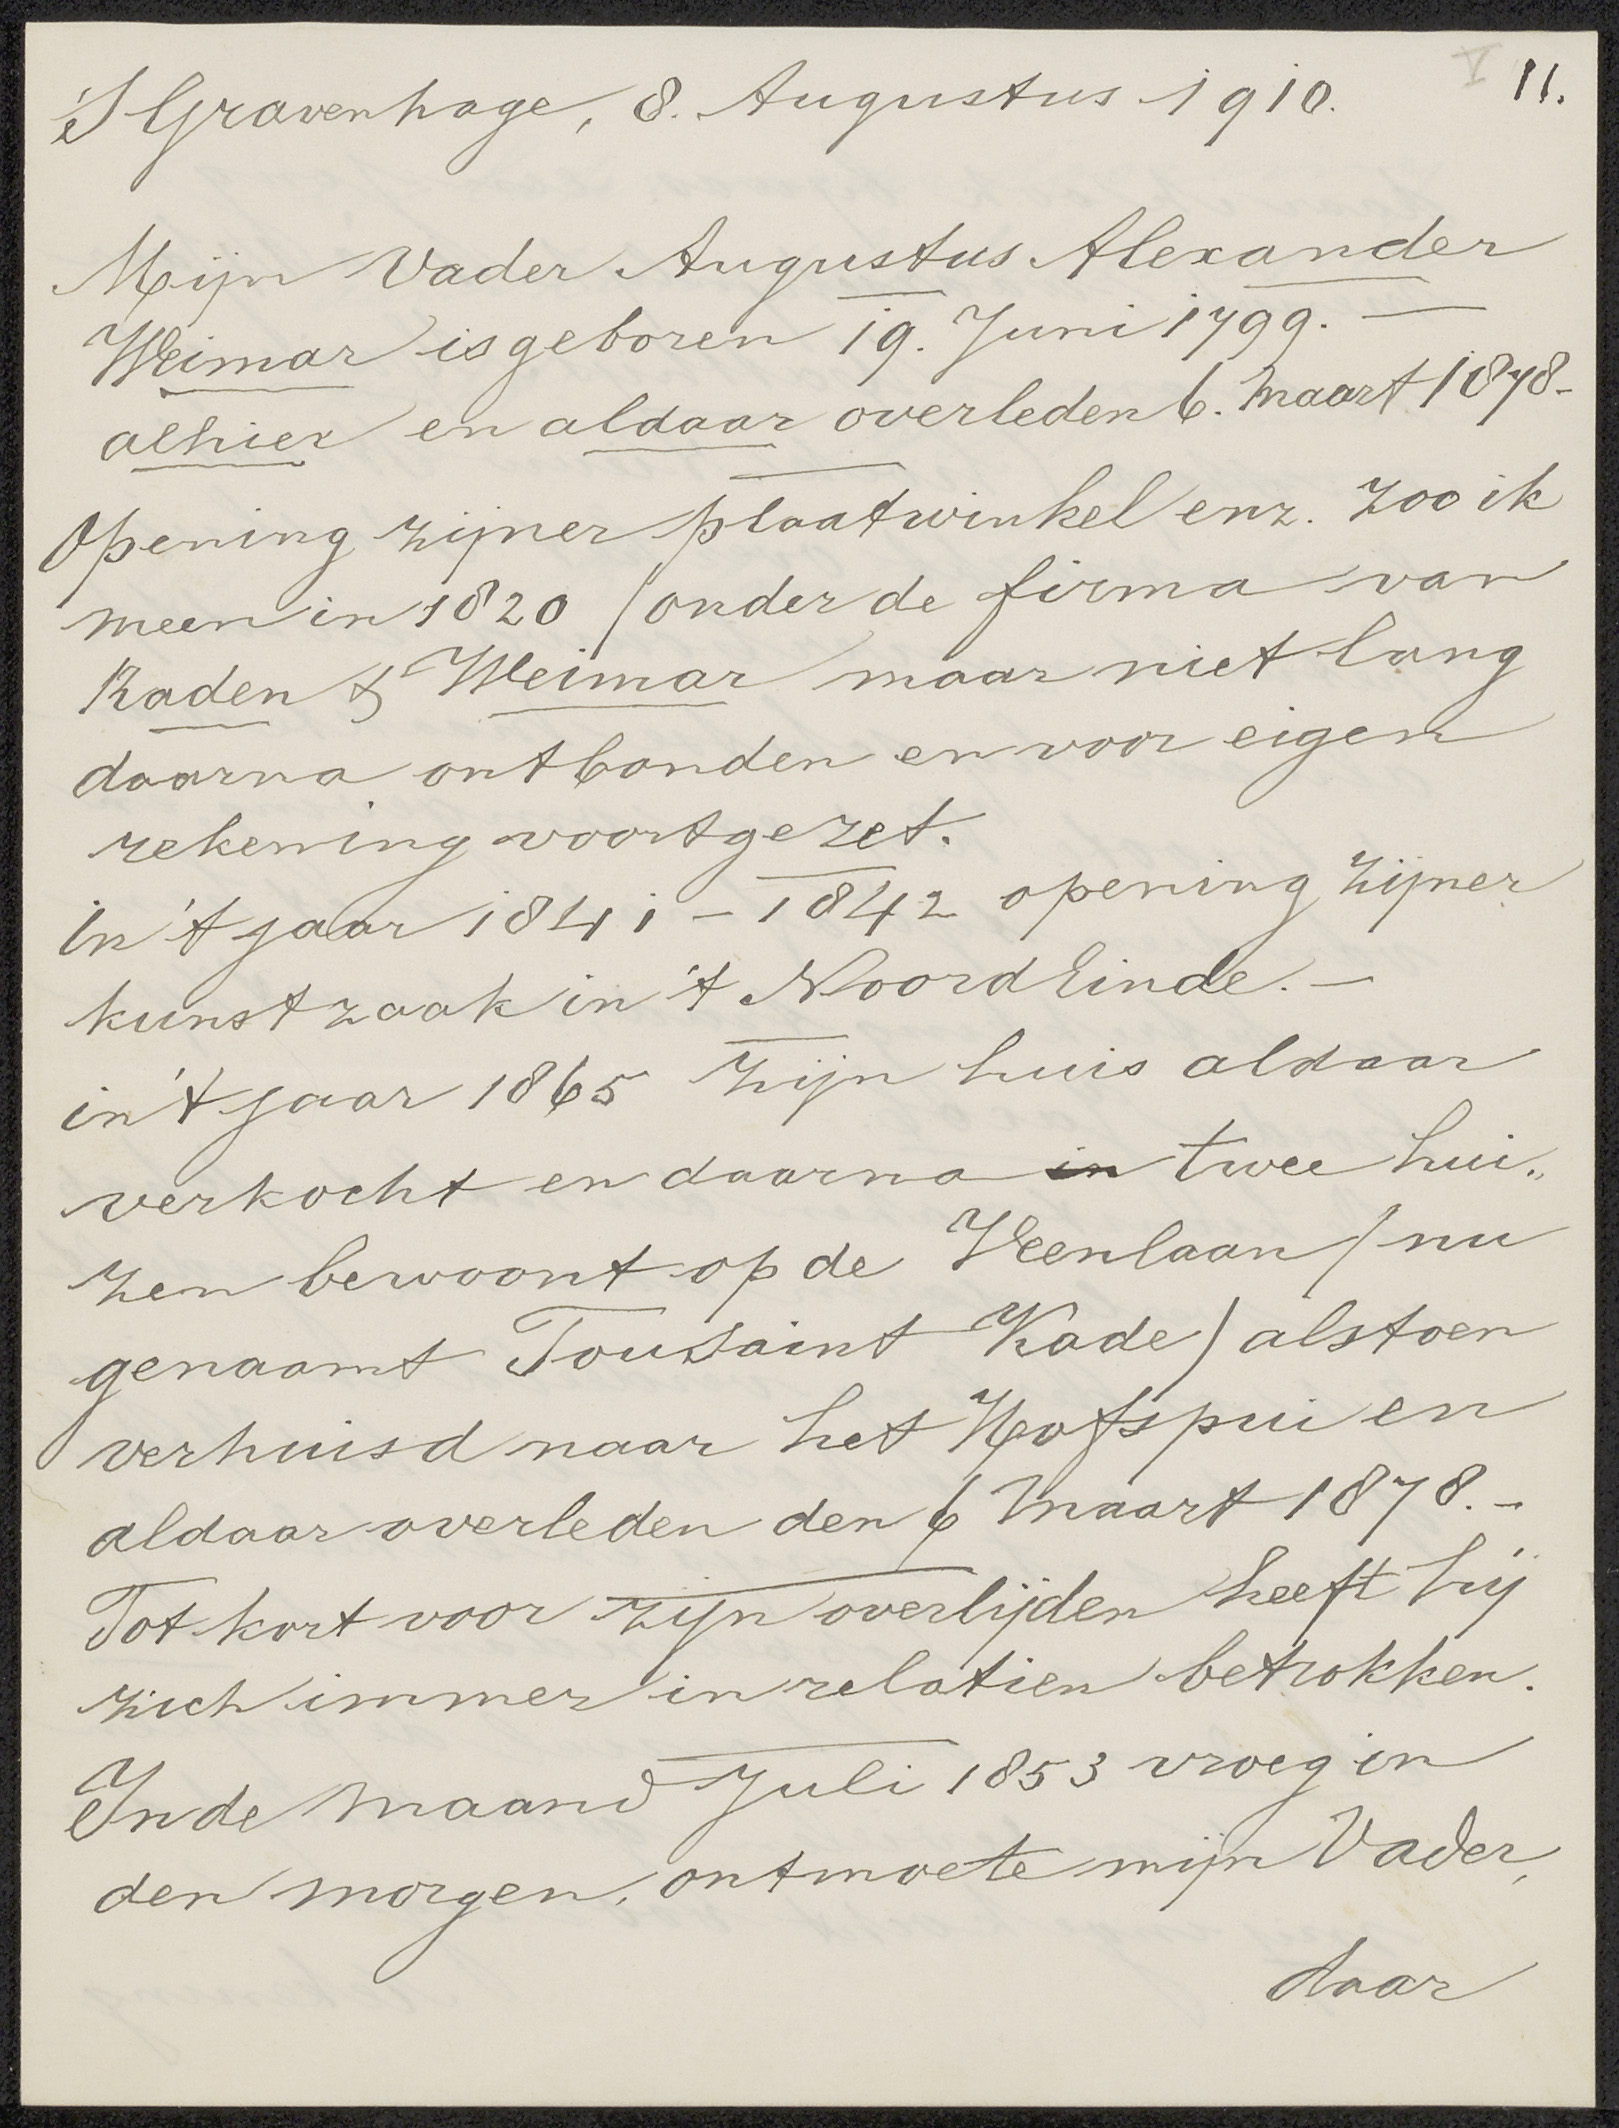 V 11.
's Gravenhage, 8. Augustus 1910.
Mijn Vader Augustus Alexander
Weimar is geboren 19. Juni 1799. —
alhier en aldaar overleden 6. Maart 1878 -
Opening zijner plaatwinkel enz. zoo ik
meen in 1820 (onder de firma van
Raden & Weimar maar niet lang
daarna ontbonden en voor eigen
rekening voortgezet.
in 't jaar 1841 - 1842 opening zijner
kunstzaak in 't Noord Einde. —
in 't jaar 1865 zijn huis aldaar
verkocht en daarna in twee hui„
zen bewoont op de Veenlaan (nu
genaamt Tousaint Kade) alstoen
verhuisd naar het Hofspui en
aldaar overleden den 6 Maart 1878. -
Tot kort voor zijn overlijden heeft hij
zich immer in relatien betrokken.
In de maand Juli 1853 vroeg in
den morgen, ontmoete mijn Vader,
daar